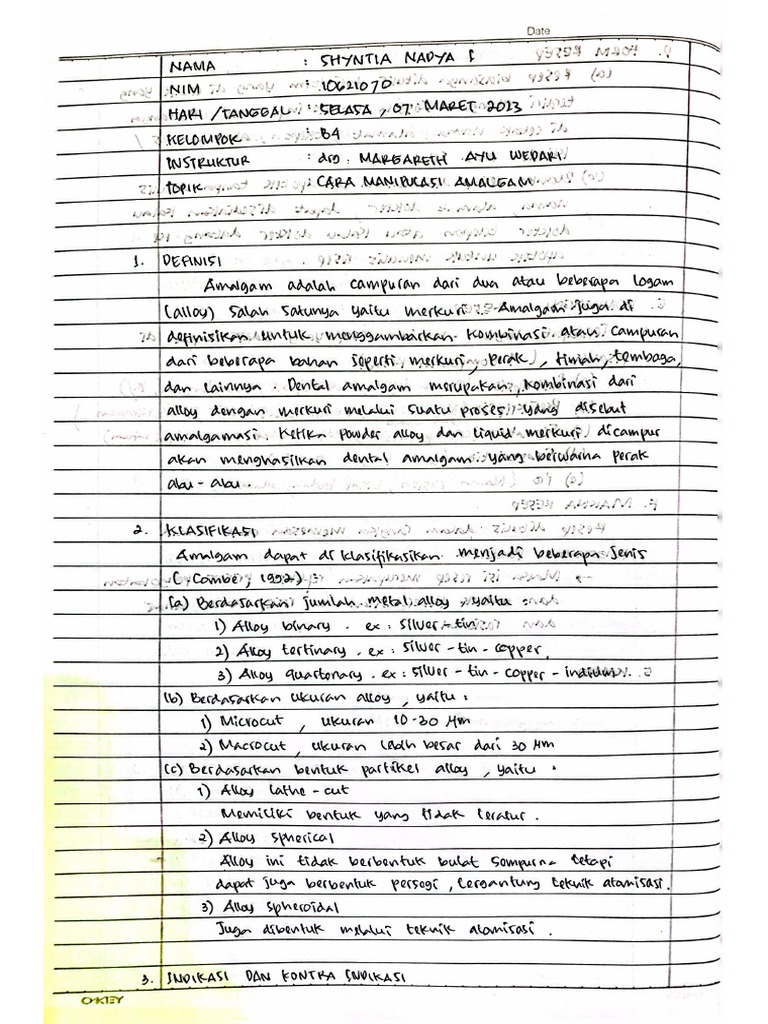 Date
NAMA : SHYNTIA NADYA P
NIM : 10621070
HARI / TANGGAL : SELASA, 07 MARET 2023
KELOMPOK : B4
INSTRUKTUR : drg. MARGARETH AYU WEDARI
TOPIK : CARA MANIPULASI AMALGAM
1. DEFINISI
Amalgam adalah campuran dari dua atau beberapa logam
(alloy) salah satunya yaitu merkuri. Amalgam juga di
definisikan untuk menggambarkan kombinasi atau campuran
dari beberapa bahan seperti merkuri, perak, timah, tembaga,
dan lainnya. Dental amalgam merupakan kombinasi dari
alloy dengan merkuri melalui suatu proses yang disebut
amalgamasi. Ketika powder alloy dan liquid merkuri dicampur
akan menghasilkan dental amalgam yang berwarna perak
abu-abu.
2. KLASIFIKASI
Amalgam dapat di klasifikasikan menjadi beberapa jenis
(Combe, 1992)
(a) Berdasarkan jumlah metal alloy, yaitu :
1) Alloy binary. ex : silver-tin
2) Alloy tertinary. ex : silver-tin-copper.
3) Alloy quartonary. ex : silver-tin-copper-indium.
(b) Berdasarkan ukuran alloy, yaitu :
1) Microcut, ukuran 10-30 µm
2) Macrocut, ukuran lebih besar dari 30 µm
(c) Berdasarkan bentuk partikel alloy, yaitu :
1) Alloy lathe-cut
Memiliki bentuk yang tidak teratur.
2) Alloy spherical
Alloy ini tidak berbentuk bulat sempurna tetapi
dapat juga berbentuk persegi, tergantung teknik atomisasi.
3) Alloy spheroidal
Juga dibentuk melalui teknik atomisasi.
3. INDIKASI DAN KONTRA INDIKASI
OKEY